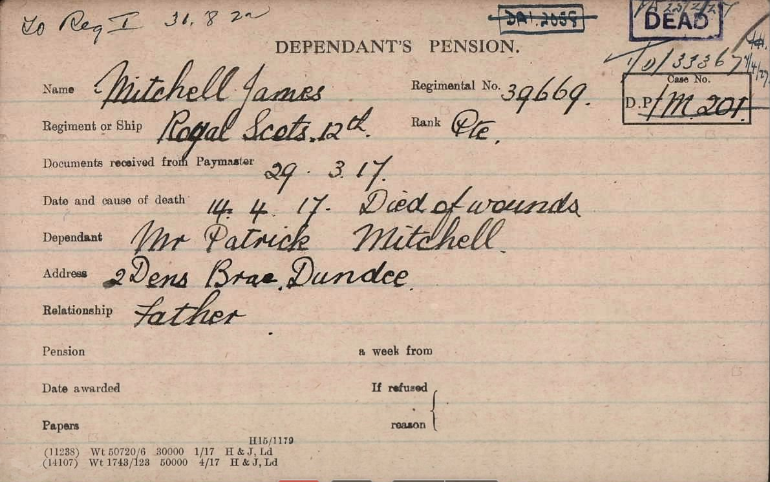 To Reg I 31.8.22
DEAD
DEPENDANT'S PENSION.
1/D/33367
Name Mitchell James Regimental No. 39669.
Case No.
D.P./M. 201.
Regiment or Ship Royal Scots. 12th. Rank Pte.
Documents received from Paymaster 29. 3. 17.
Date and cause of death 14. 4. 17. Died of wounds
Dependant Mr Patrick Mitchell.
Address 2 Dens Brae, Dundee.
Relationship Father
Pension a week from
Date awarded If refused
Papers reason
H15/1179
(11238) Wt 50720/6 30000 1/17 H & J, Ld
(14107) Wt 1743/123 50000 4/17 H & J, Ld